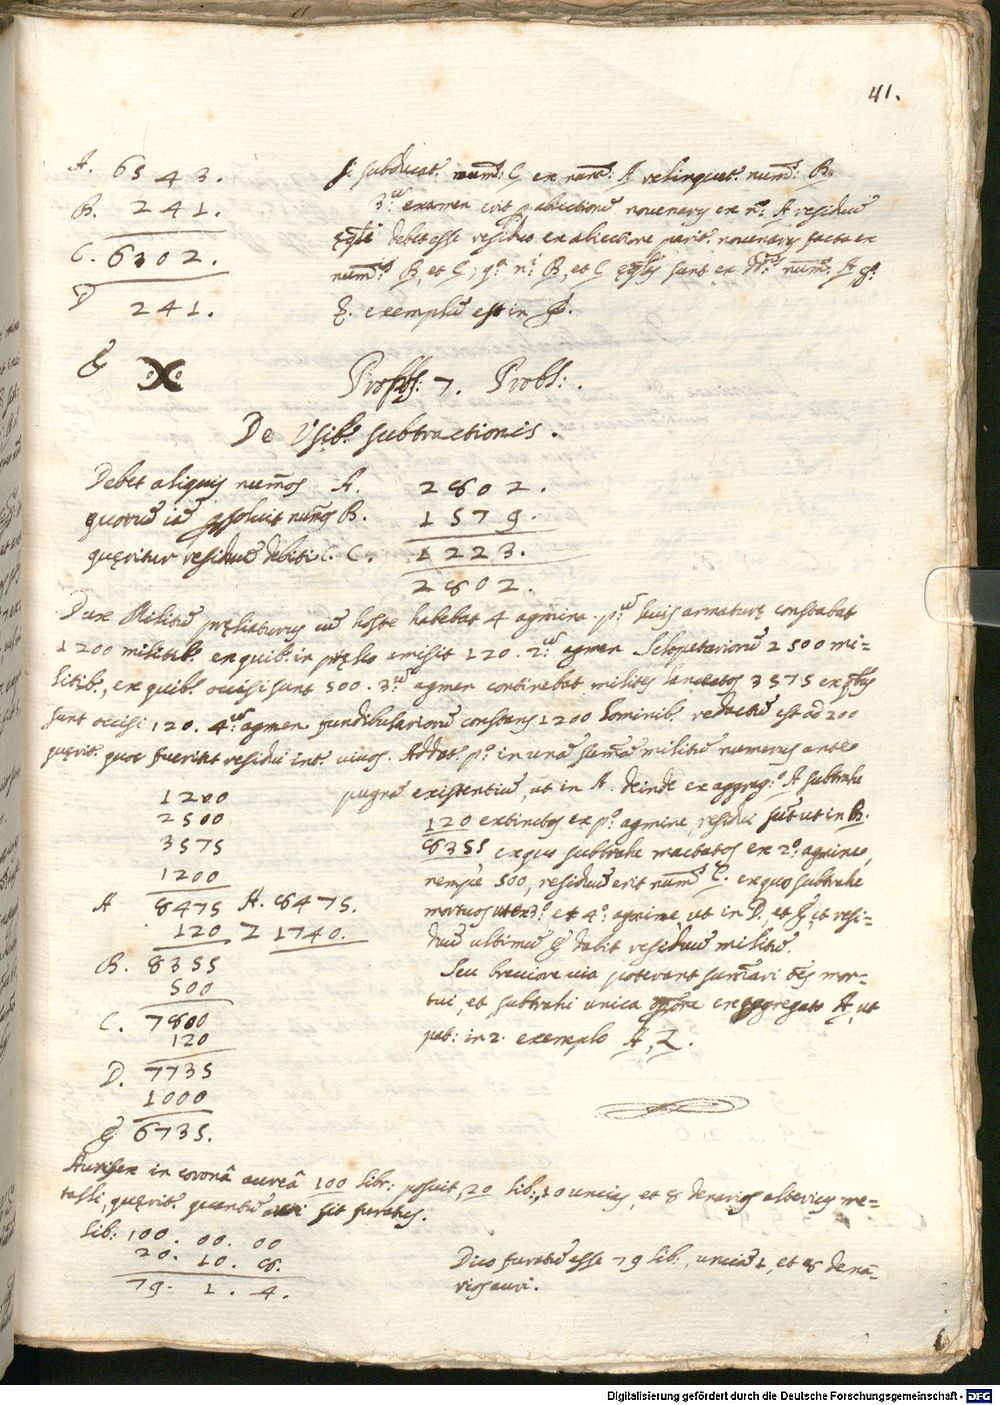 41.
A. 6543.
B. 241.
C. 6302.
D 241.
subducat. num: C ex num: A relinquet. num: B.
3.us examen erit p abiectione novenarij ex n.o A residuu
debet esse residuo ex abiectione parit. novenarij facta ex
num.is B, et C,
E. exemplu est in E.
E
Propos: 7. Probl:.
De Usib. subtractionis.
Debet aliquis numos A. 2802.
quoru ia psoluit numos B. 1579.
quęritur residuu debiti C. C. 1223.
2802.
Dux Militu pręliaturus cu hoste habebat 4 agmina. p.us leuis armaturę constabat
1200 militib. ex quib. in pręlio amisit 120. 2.us agmen Sclopetarioru 2500 mi=
litib., ex quib. occisi sunt 500. 3.us agmen continebat milites lanceatos 3575 ex
sunt occisi 120. 4.us agmen fundibularioru constans 1200 hominib. redactu est ad 200
quęrit. quot fuerint residui int. uiuos. Addat. p.o in una suma militu numerus ante
pugna existentiu, ut in A. deinde ex aggreg:o A subtrahe
120 extinctos ex p.o agmine, residui sut ut in B.
8355 ex quo subtrahe mactatos ex 2.o agmine,
nempe 500, residuus erit num. C. ex quo subtrahe
mortuos ut ex 3.o et 4.o agmine, ut in D, et E, et resi=
duu ultimu E dabit residuu militu.
Seu breviore uia poterant sumari oes mor=
tui, et subtrahi unica opera ex aggregato A, ut
pat: in 2. exemplo A, Z.
1200
2500
3575
1200
A 8475 A. 8475.
120 Z 1740.
B. 8355
500
C. 7800
120
D. 7735
1000
E 6735.
Aurifex in coronâ aureâ 100 libr: posuit, 20 lib:, 10 uncias, et 8 denarios alterius me=
talli, quęrit. quantu auri sit furatus.
Lib: 100. 00. 00
20. 10. 8.
79. 1. 4.
Dico furatu esse 79 lib:, uncia 1, et 8 dena=
rios auri.
Digitalisierung gefördert durch die Deutsche Forschungsgemeinschaft - DFG